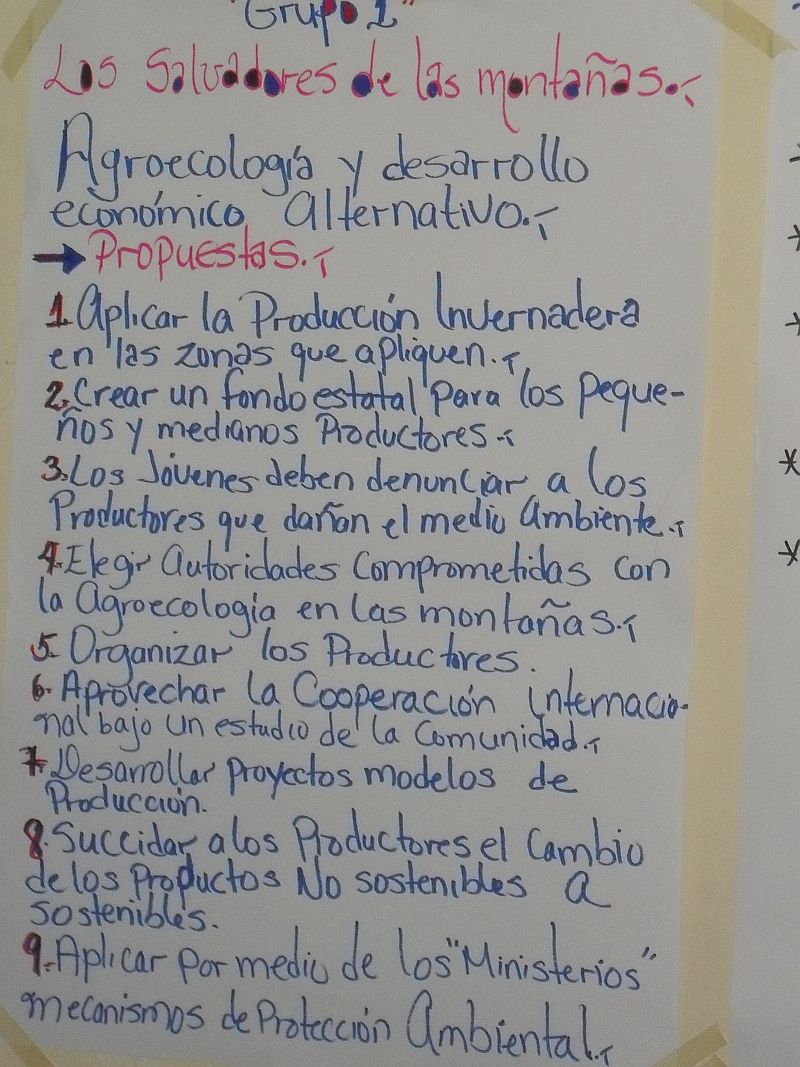 "Grupo 1"
Los Salvadores de las montañas.-
Agroecología y desarrollo
económico Alternativo.-
→ Propuestas.-
1. Aplicar la Producción Invernadera
en las zonas que apliquen.-
2. Crear un fondo estatal Para los Peque-
ños y medianos Productores.-
3. Los Jóvenes deben denunciar a los
Productores que dañan el medio Ambiente.-
4. Elegir Autoridades Comprometidas con
la Agroecología en las montañas.-
5. Organizar los Productores.
6. Aprovechar la Cooperación internacio-
nal bajo un estudio de la Comunidad.-
7. Desarrollar proyectos modelos de
Producción.
8. Succidar a los Productores el Cambio
de los Productos No sostenibles a
sostenibles.
9. Aplicar por medio de los "Ministerios"
mecanismos de Protección Ambiental.-